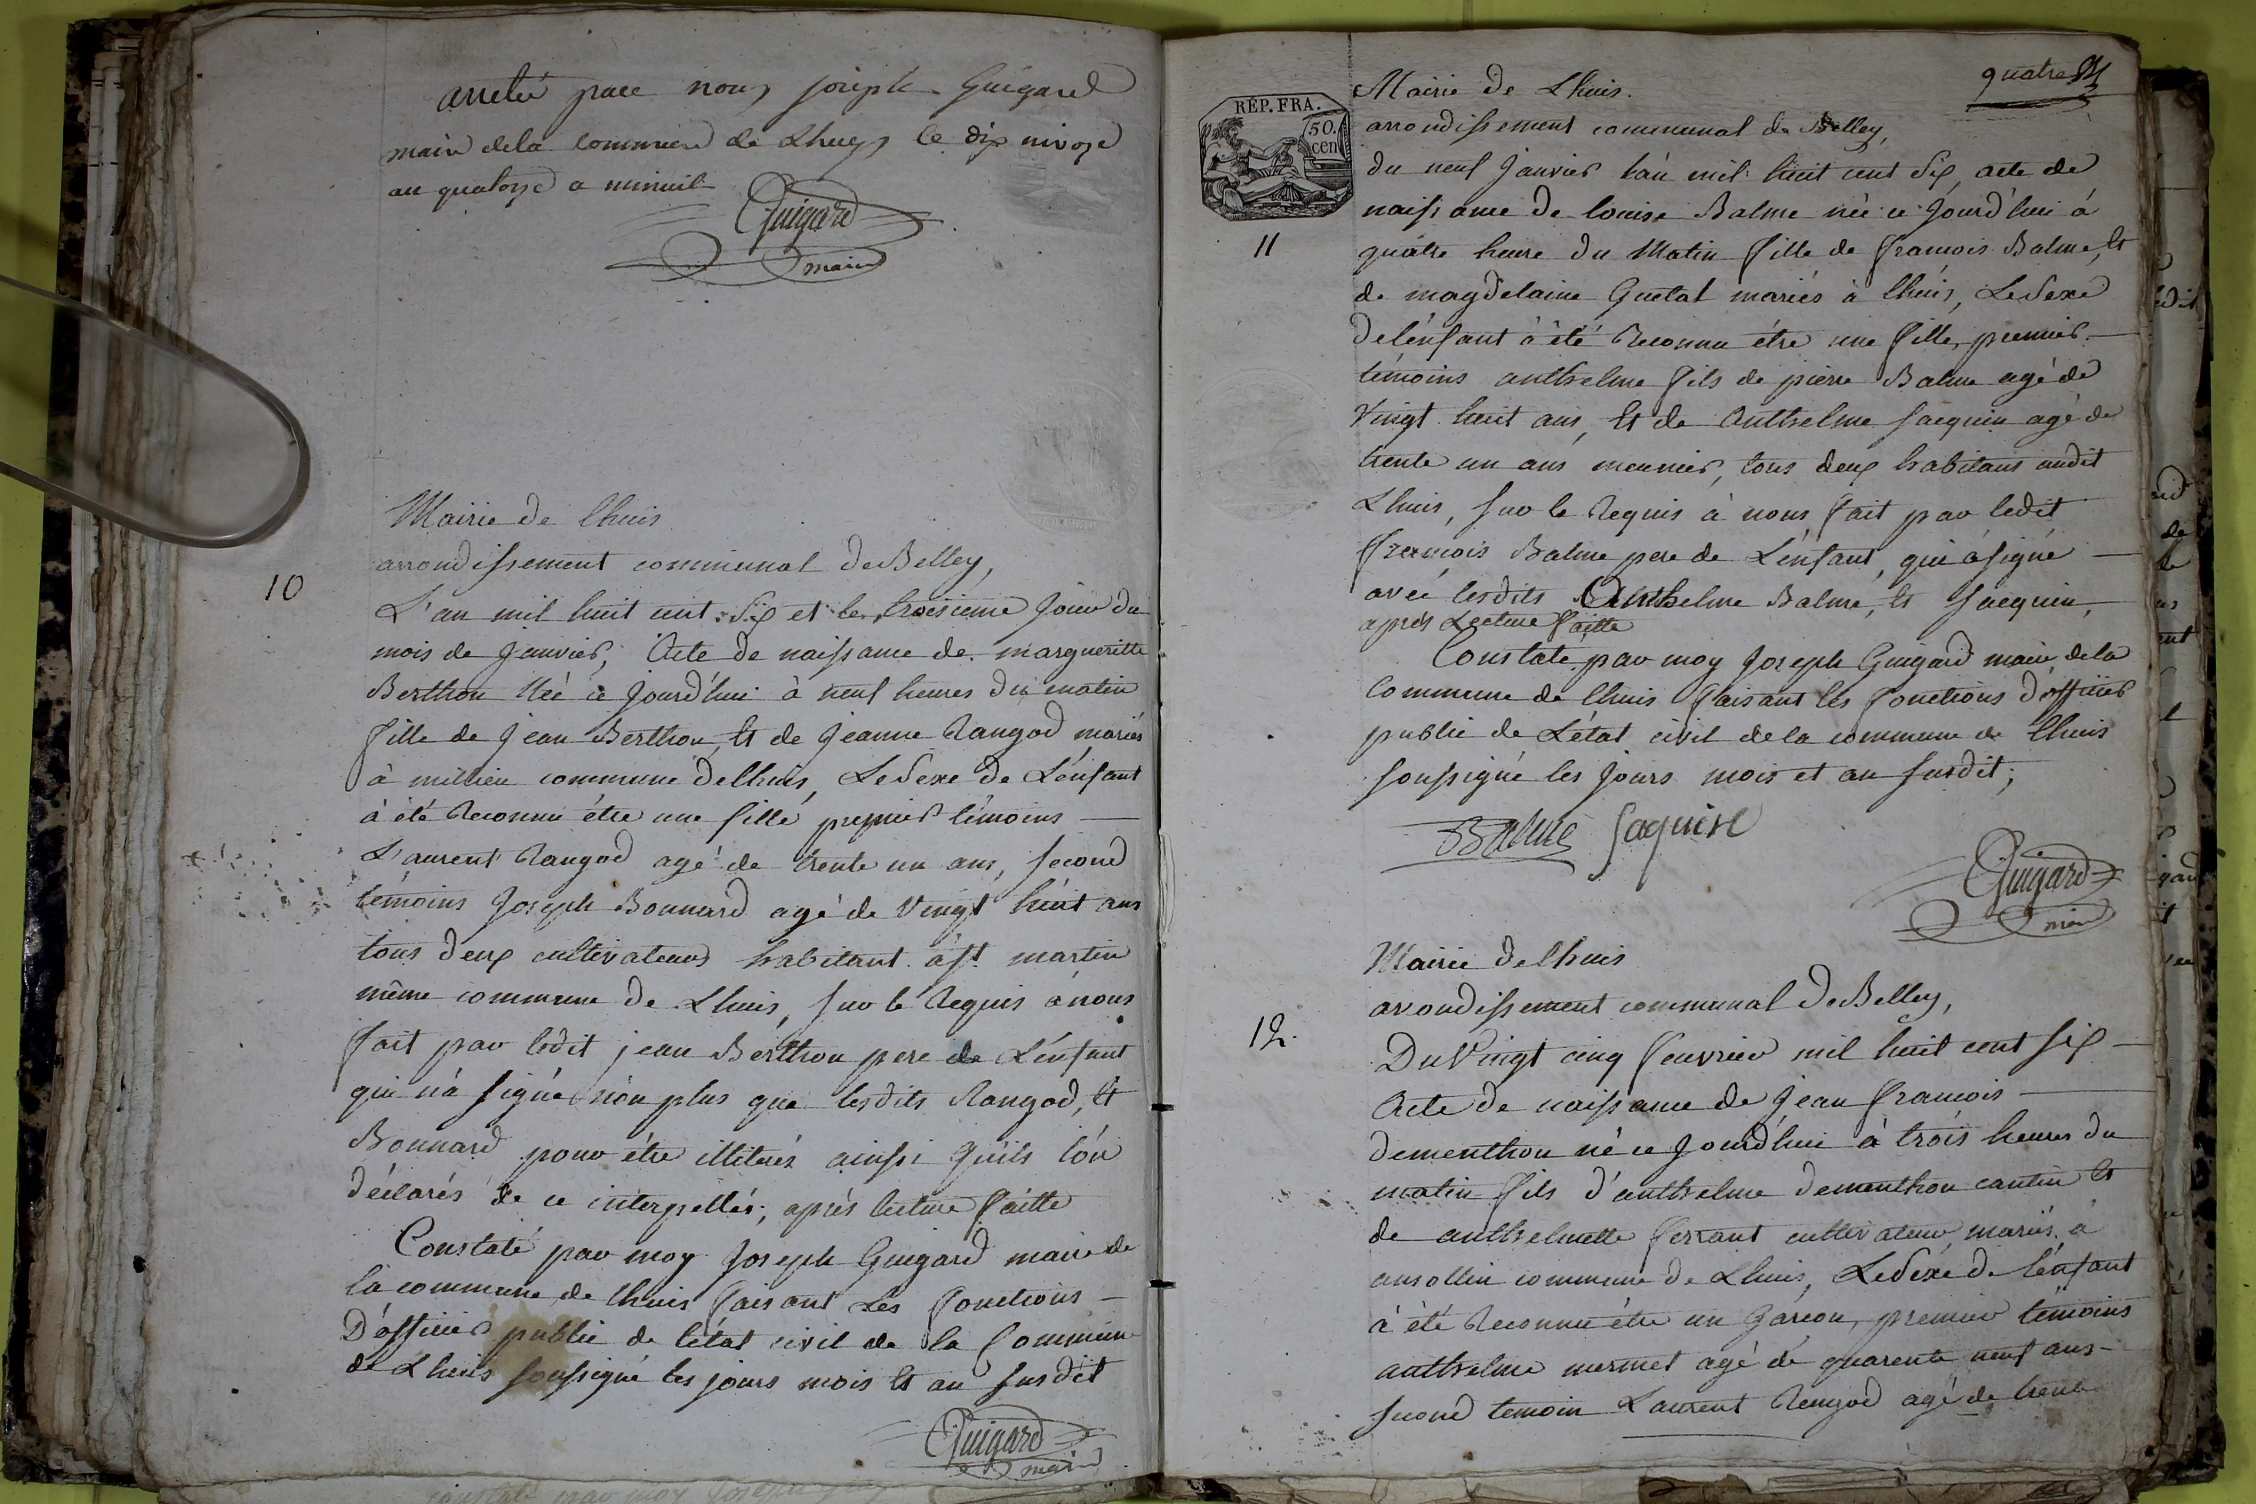 arretée parre nous joseph Guigard
maire dela commune de Lhuys le dix nivose
an quatorze a minuit
Guigard
maire
Mairie de lhuis
arrondissement communal de Belley,
10
L'an mil huit cent Six et le troisieme jour du
mois de Janvier, Acte de naissance de margueritte
Berthon Néé ce jourd'hui à neuf heures du matin
fille de Jean Berthon, Et de Jeanne Rangod mariés
à millieu commune de lhuis, Le Sexe de L'enfant
à été Reconnu étre une fille, premier témoins
Laurent Rangod agé de trente un ans, second
témoins Joseph Bonnard agé de vingt huit ans
tous deux cultivateurs habitant à st. martin
même commune de Lhuis, sur le Requis à nous
fait par ledit jean Berthon pere de L'enfant
qui n'a signé non plus que lesdits Rangod, Et
Bonnard pour étre illiterés ainsi qu'ils l'on
déclarés de ce interpellés, aprés lecture faitte
Constaté par moy Joseph Guigard maire de
la commune de lhuis faisant Les fonctions
D'officier public de l'état civil de la Commune
de Lhuis soussigné les jours mois Et an susdit
Guigard
maire
quatre
RÉP. FRA.
50.
cen
Mairie de Lhuis.
arrondissement communal de Belley,
du neuf Janvier l'an mil huit cent Six, acte de
naissance de Louise Balme née ce Jourd'hui à
11
quatre heure du Matin fille de francois Balme, Et
de magdelaine Guetat mariés à lhuis, Le Sexe
de l'enfant à été Reconnu étre une fille, premier
témoins anthelme fils de pierre Balme agé de
Vingt huit ans, Et de Anthelme Jacquin agé de
trente un ans meunier, tous deux habitans audit
Lhuis, sur le Requis à nous fait par ledit
François Balme pere de L'enfant, qui à signé
avec lesdits Anthelme Balme, Et Jacquin,
aprés Lecture faitte
Constaté par moy Joseph Guigard maire de la
Commune de lhuis faisant les fonctions d'officier
public de L'état civil de la commune de lhuis
soussigné les jours mois et an susdit;
Balme Jaquin
Guigard
maire
Mairie de lhuis
arrondissement communal de Belley,
12.
Du Vingt cinq feuvrier mil huit cent six
Acte de naissance de Jean francois
dementhon né ce Jourd'hui à trois heures du
matin fils d'anthelme dementhon cantin Et
de anthelmette ferrant cultivateur, mariés à
ansollin commune de Lhuis, Le Sexe de l'enfant
à été Reconnu étre un Garcon, premier témoins
anthelme mermet agé de quarente neuf ans
second temoin Laurent Rengod agé de trente